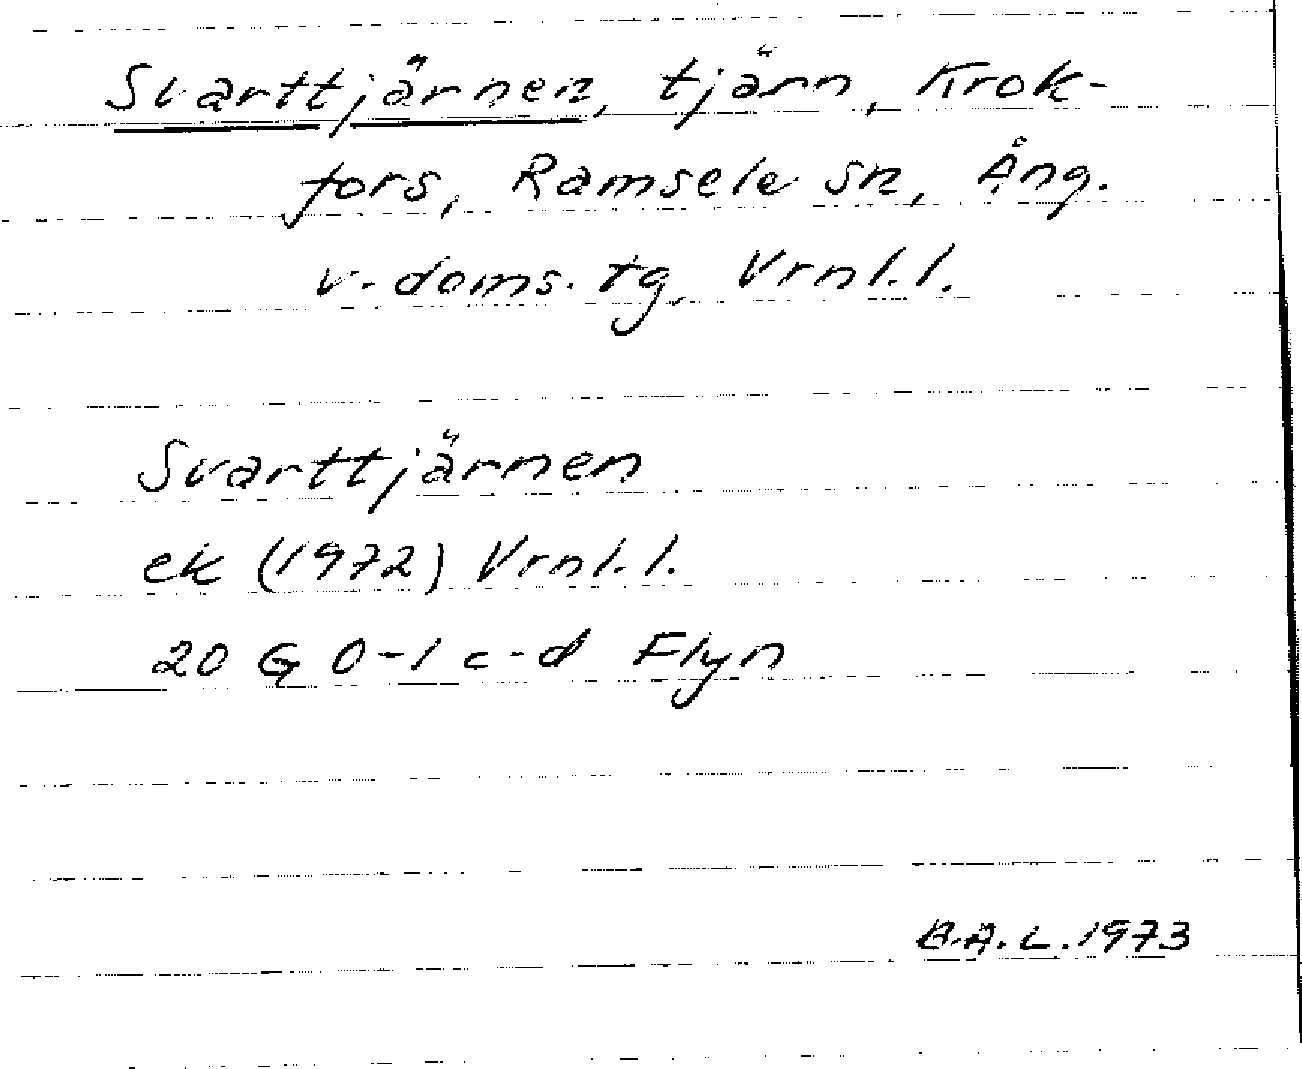 Svarttjärnen, tjärn, Krok-
fors, Ramsele sn, Ång.
v-doms. tg, Vrnl.l.
Svarttjärnen
ek (1972) Vrnl.l.
20 G 0-1 c-d Flyn
B.A.L. 1973